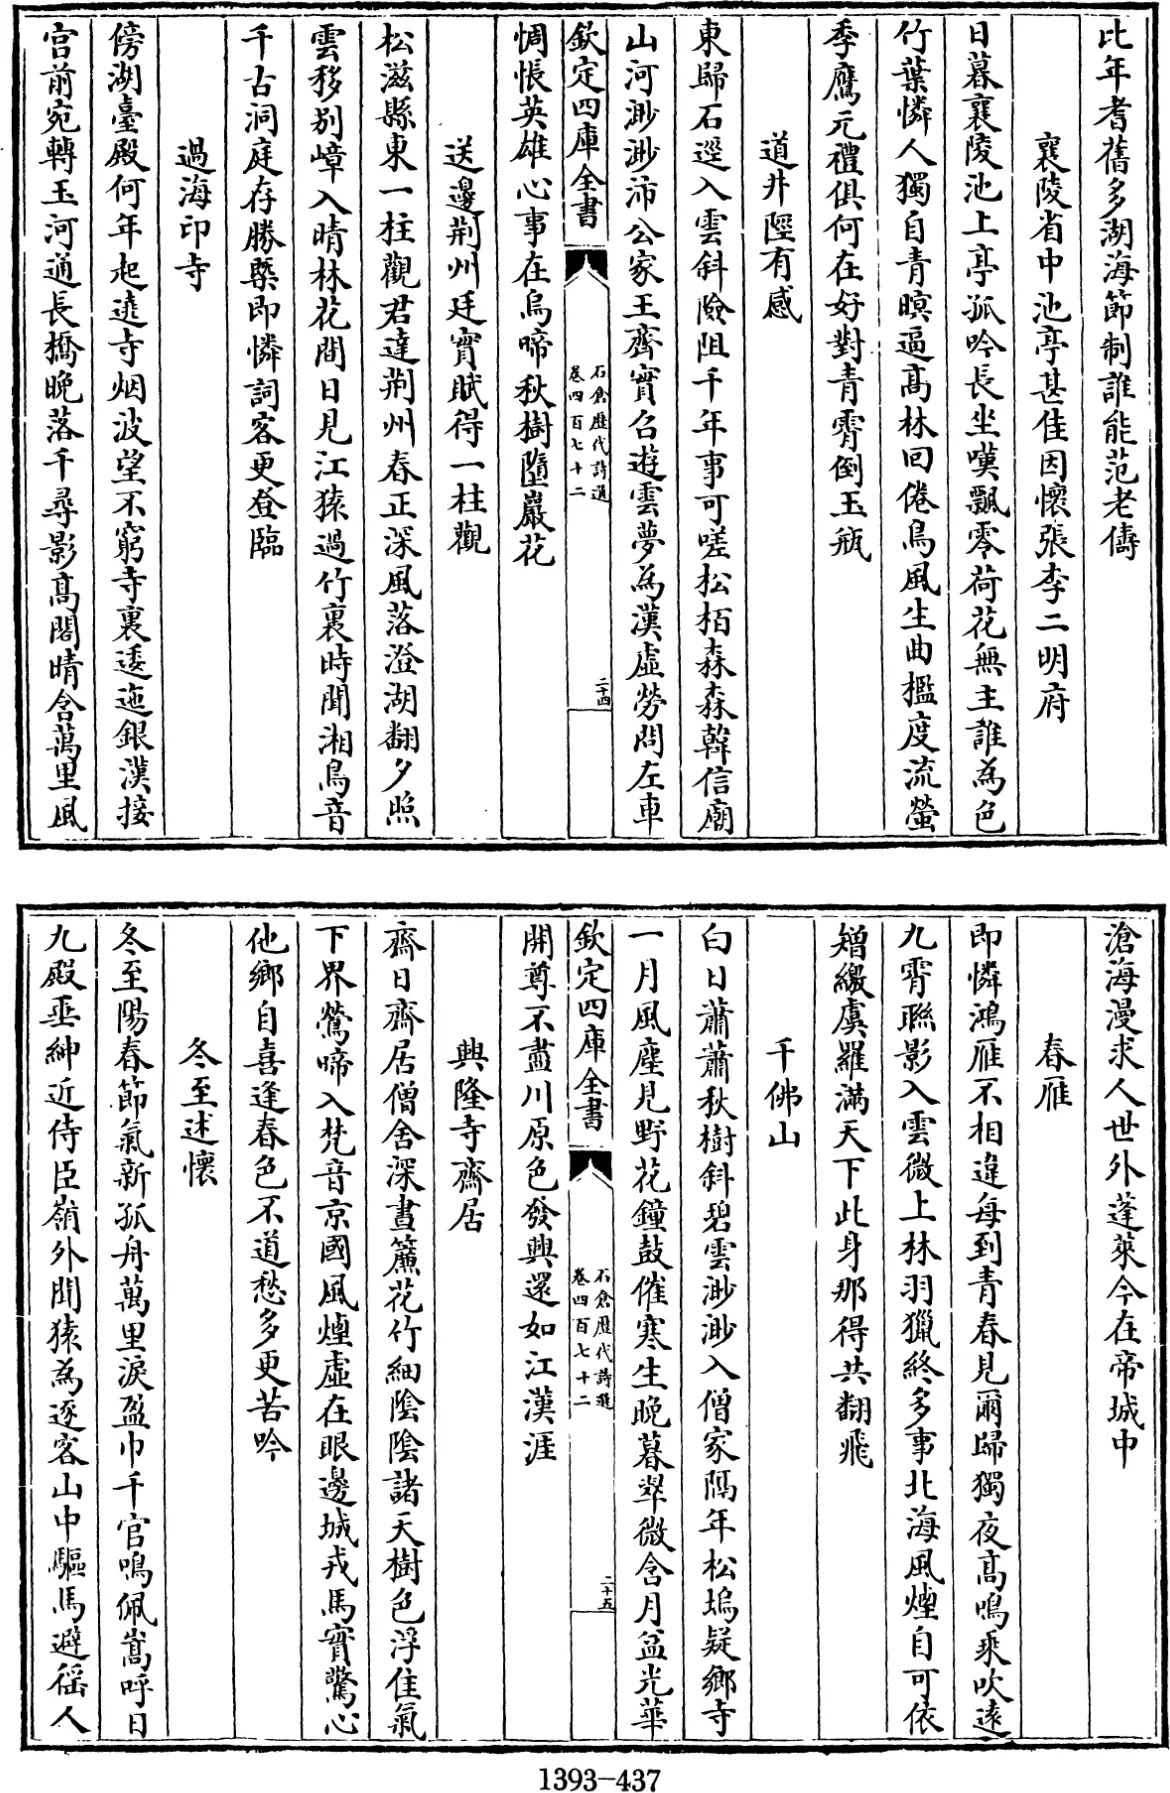 比年耆舊多湖海節制誰能范老儔
襄陵省中池亭甚佳因懷張李二明府
日暮襄陵池上亭孤吟長坐嘆飄零荷花無主誰為色
竹葉憐人獨自青暝逼髙林回倦鳥風生曲檻度流螢
季鷹元禮俱何在好對青霄倒玉瓶
道井陘有感
東歸石逕入雲斜險阻千年事可嗟松栢森森韓信廟
山河渺渺沛公家王齊實召遊雲夢為漢虛勞問左車
欽定四庫全書
石倉歷代詩選
卷四百七十二
二十四
惆悵英雄心事在烏啼秋樹墮巖花
送邊荆州廷實賦得一柱觀
松滋縣東一柱觀君達荆州春正深風落澄湖翻夕照
雲移别嶂入晴林花間日見江猿過竹裏時聞湘鳥音
千古洞庭存勝槩即憐詞客更登臨
過海印寺
傍湖臺殿何年起遶寺烟波望不窮寺裏逶迤銀漢接
宫前宛轉玉河通長橋晚落千尋影髙閣晴含萬里風
滄海漫求人世外蓬萊今在帝城中
春雁
即憐鴻雁不相違每到青春見爾歸獨夜髙鳴乘吹遠
九霄聯影入雲微上林羽獵終多事北海風煙自可依
矰繳虞羅滿天下此身那得共翻飛
千佛山
白日蕭蕭秋樹斜碧雲渺渺入僧家隔年松塢疑鄉寺
一月風塵見野花鐘鼓催寒生晚暮翠微含月益光華
欽定四庫全書
石倉歷代詩選
卷四百七十二
二十五
開尊不盡川原色發興還如江漢涯
興隆寺齋居
齋日齋居僧舍深晝簾花竹細陰陰諸天樹色浮佳氣
下界鶯啼入梵音京國風煙虛在眼邊城戎馬實驚心
他鄉自喜逢春色不道愁多更苦吟
冬至述懷
冬至陽春節氣新孤舟萬里淚盈巾千官鳴佩嵩呼日
九殿垂紳近侍臣嶺外聞猿為逐客山中驅馬避徭人
1393-437